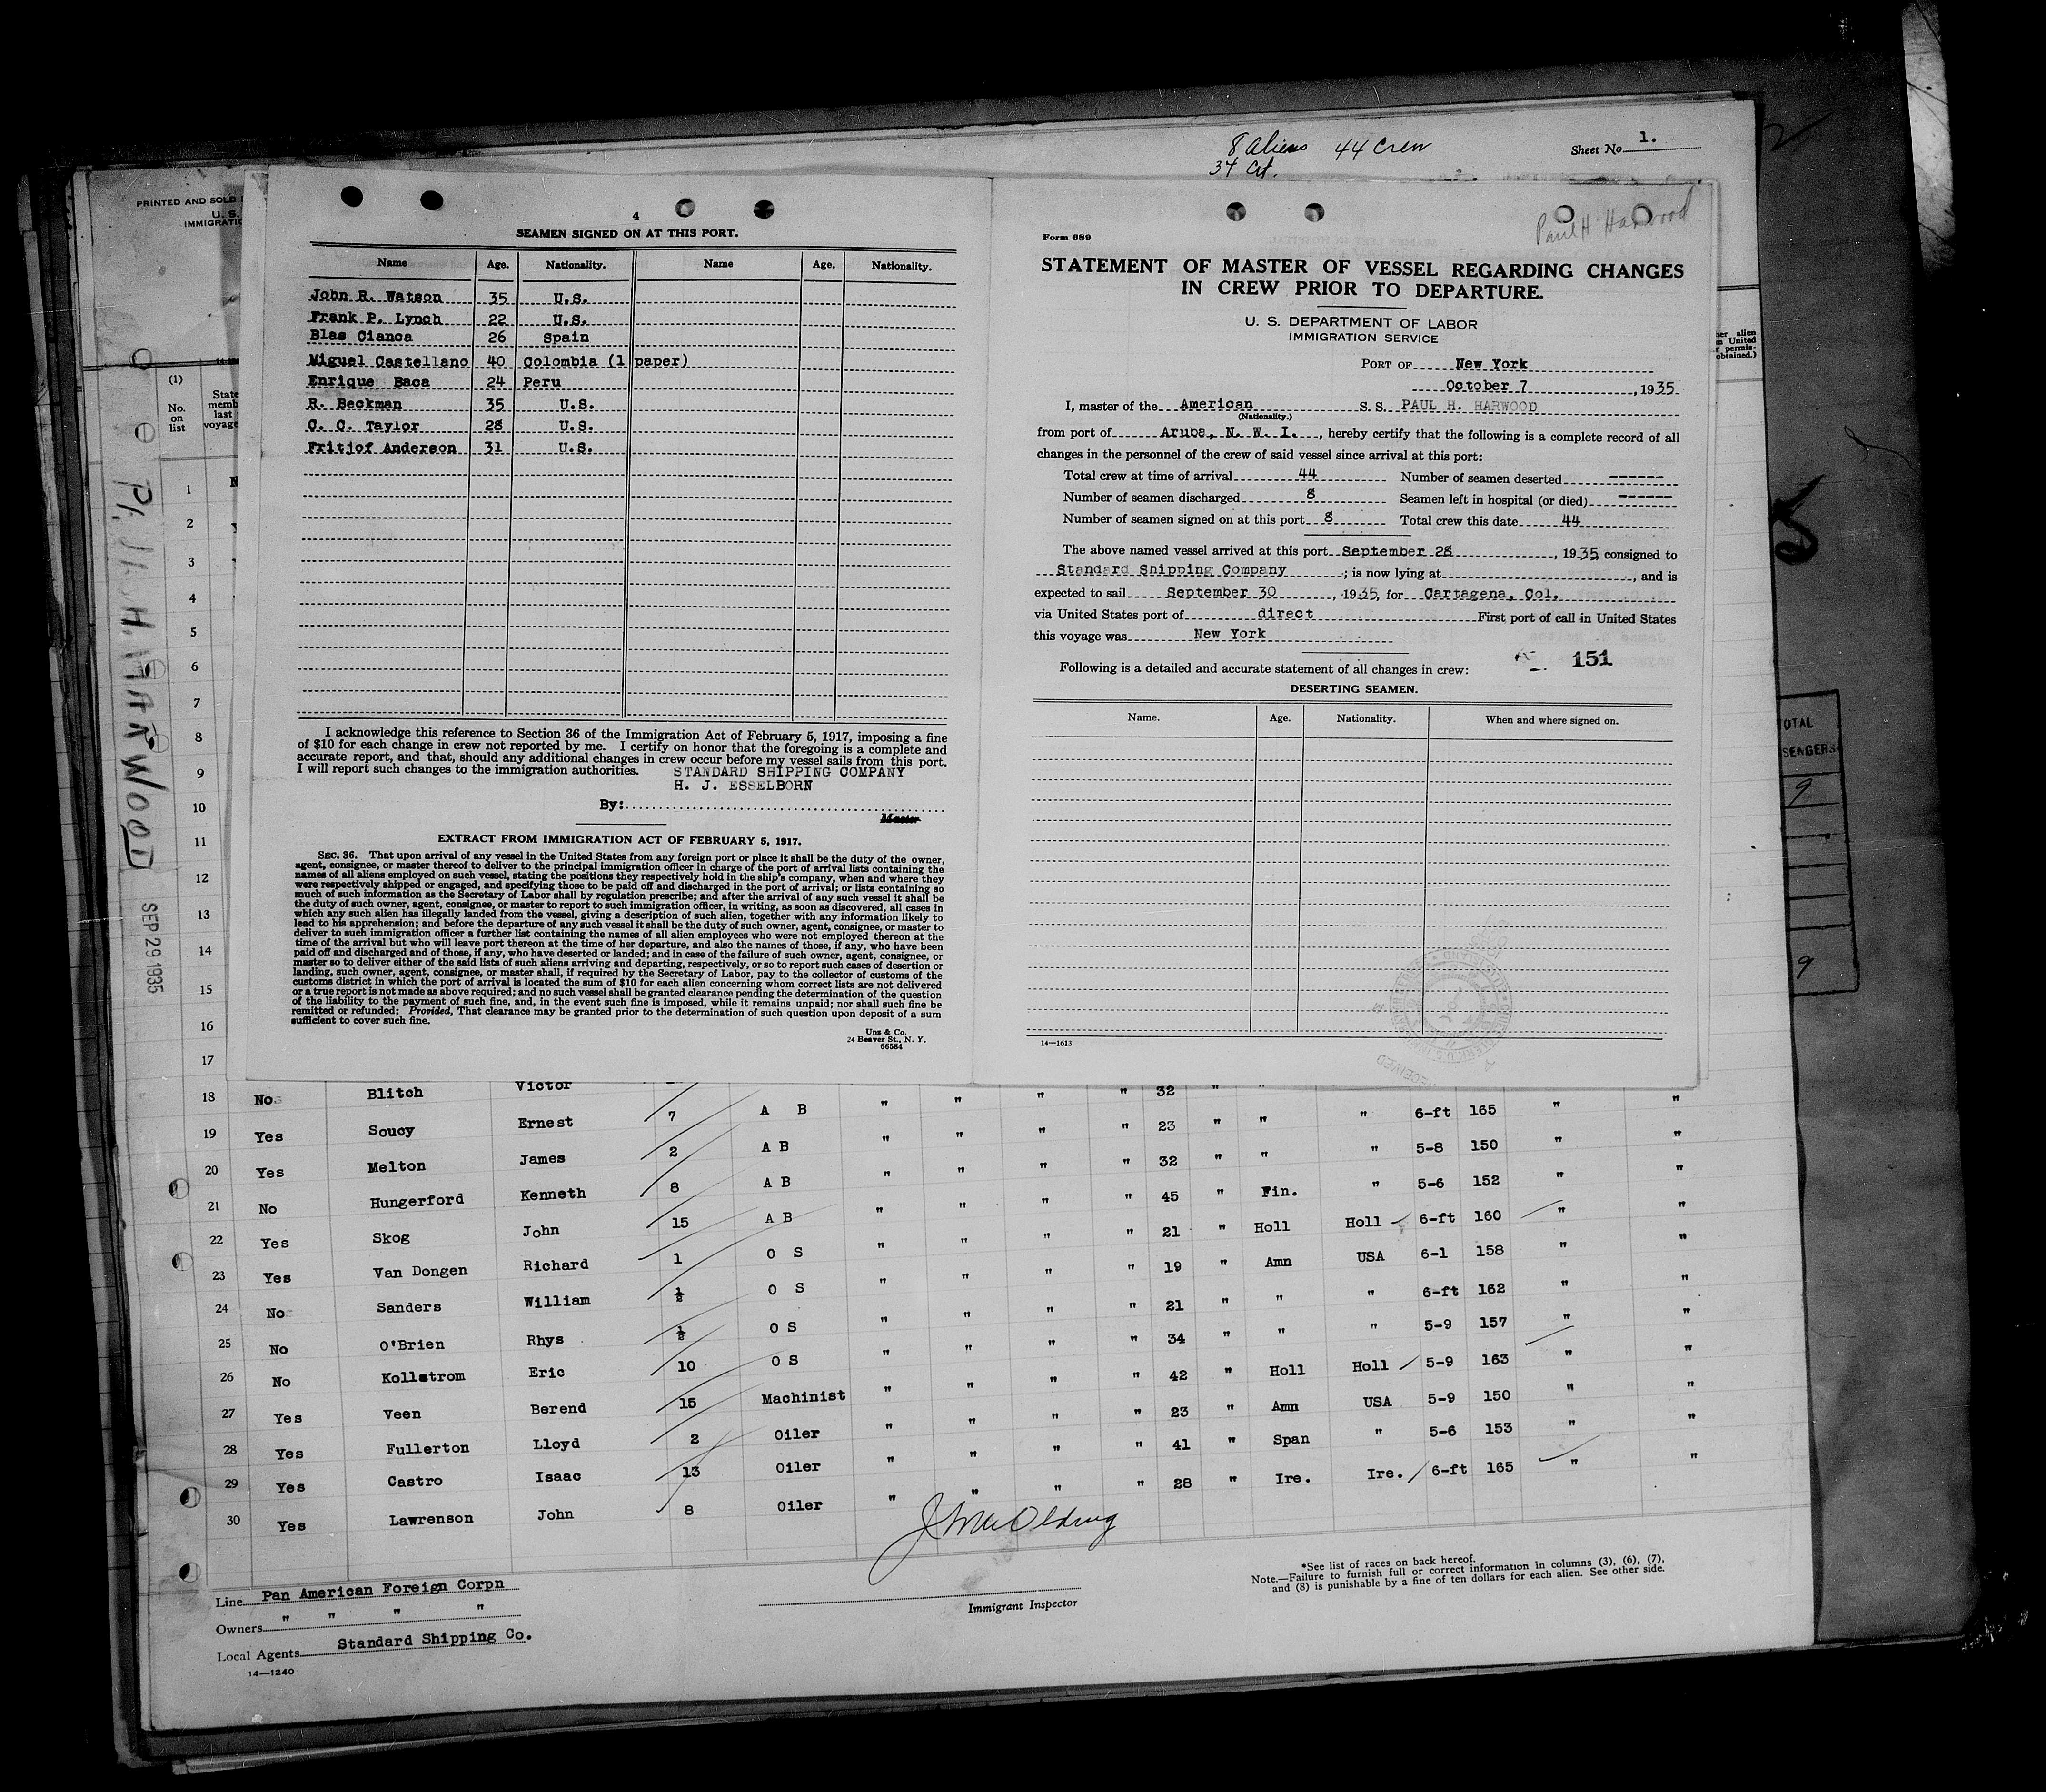 8 aliens 44 Crew
34 Cit.
Sheet No. 1.
PRINTED AND SOLD
U. S.
IMMIGRATIO
4
SEAMEN SIGNED ON AT THIS PORT.
Name Age. Nationality. Name Age. Nationality.
John R. Watson 35 U.S.
Frank P. Lynch 22 U.S.
Blas Cianca 26 Spain
Miguel Castellano 40 Colombia (1 paper)
Enrique Baca 24 Peru
R. Beckman 35 U.S.
C. C. Taylor 28 U.S.
Fritjof Anderson 31 U.S.
I acknowledge this reference to Section 36 of the Immigration Act of February 5, 1917, imposing a fine
of $10 for each change in crew not reported by me. I certify on honor that the foregoing is a complete and
accurate report, and that, should any additional changes in crew occur before my vessel sails from this port.
I will report such changes to the immigration authorities. STANDARD SHIPPING COMPANY
H. J. ESSELBORN
By:
Master
EXTRACT FROM IMMIGRATION ACT OF FEBRUARY 5, 1917.
SEC. 36. That upon arrival of any vessel in the United States from any foreign port or place it shall be the duty of the owner,
agent, consignee, or master thereof to deliver to the principal immigration officer in charge of the port of arrival lists containing the
names of all aliens employed on such vessel, stating the positions they respectively hold in the ship's company, when and where they
were respectively shipped or engaged, and specifying those to be paid off and discharged in the port of arrival; or lists containing so
much of such information as the Secretary of Labor shall by regulation prescribe; and after the arrival of any such vessel it shall be
the duty of such owner, agent, consignee, or master to report to such immigration officer, in writing, as soon as discovered, all cases in
which any such alien has illegally landed from the vessel, giving a description of such alien, together with any information likely to
lead to his apprehension; and before the departure of any such vessel it shall be the duty of such owner, agent, consignee, or master to
deliver to such immigration officer a further list containing the names of all alien employees who were not employed thereon at the
time of the arrival but who will leave port thereon at the time of her departure, and also the names of those, if any, who have been
paid off and discharged and of those, if any, who have deserted or landed; and in case of the failure of such owner, agent, consignee, or
master so to deliver either of the said lists of such aliens arriving and departing, respectively, or so to report such cases of desertion or
landing, such owner, agent, consignee, or master shall, if required by the Secretary of Labor, pay to the collector of customs of the
customs district in which the port of arrival is located the sum of $10 for each alien concerning whom correct lists are not delivered
or a true report is not made as above required; and no such vessel shall be granted clearance pending the determination of the question
of the liability to the payment of such fine, and, in the event such fine is imposed, while it remains unpaid; nor shall such fine be
remitted or refunded; Provided, That clearance may be granted prior to the determination of such question upon deposit of a sum
sufficient to cover such fine.
Unz & Co.
24 Beaver St., N. Y.
66584
Paul H Harwood
Form 689
STATEMENT OF MASTER OF VESSEL REGARDING CHANGES
IN CREW PRIOR TO DEPARTURE.
U. S. DEPARTMENT OF LABOR
IMMIGRATION SERVICE
PORT OF New York
October 7, 1935
I, master of the American S. S. PAUL H. HARWOOD
(Nationality.)
from port of Aruba, N. W. I., hereby certify that the following is a complete record of all
changes in the personnel of the crew of said vessel since arrival at this port:
Total crew at time of arrival 44 Number of seamen deserted ------
Number of seamen discharged 8 Seamen left in hospital (or died) ------
Number of seamen signed on at this port 8 Total crew this date 44
The above named vessel arrived at this port September 28, 1935 consigned to
Standard Shipping Company; is now lying at, and is
expected to sail September 30, 1935, for Cartagena, Col.
via United States port of direct First port of call in United States
this voyage was New York
Following is a detailed and accurate statement of all changes in crew: 151
DESERTING SEAMEN.
Name. Age. Nationality. When and where signed on.
14—1613
RECEIVED
her alien
m United
r permis-
obtained.)
OTAL
SSENGERS
9
9
(1)
No.
on
list
State
memb
last
voyage
PAUL H. HARWOOD
SEP 29 1935
1
2
3
4
5
6
7
8
9
10
11
12
13
14
15
16
17
18 No Blitch Victor 7 A B " " " " 32 " " " 6-ft 165 " "
19 Yes Soucy Ernest 2 A B " " " " 23 " " " 5-8 150 " "
20 Yes Melton James 8 A B " " " " 32 " " " 5-6 152 " "
21 No Hungerford Kenneth 15 A B " " " " 45 " Fin. " 6-ft 160 " "
22 Yes Skog John 1 O S " " " " 21 " Holl Holl 6-1 158 " "
23 Yes Van Dongen Richard ½ O S " " " " 19 " Amn USA 6-ft 162 " "
24 No Sanders William ½ O S " " " " 21 " " " 5-9 157 " "
25 No O'Brien Rhys 10 O S " " " " 34 " " " 5-9 163 " "
26 No Kollstrom Eric 15 Machinist " " " " 42 " Holl Holl 5-9 150 " "
27 Yes Veen Berend 2 Oiler " " " " 23 " Amn USA 5-6 153 " "
28 Yes Fullerton Lloyd 13 Oiler " " " " 41 " Span " 6-ft 165 " "
29 Yes Castro Isaac 8 Oiler " " " " 28 " Ire. Ire.
30 Yes Lawrenson John
Immigrant Inspector
*See list of races on back hereof.
Note.—Failure to furnish full or correct information in columns (3), (6), (7),
and (8) is punishable by a fine of ten dollars for each alien. See other side.
Line Pan American Foreign Corpn
Owners " " " "
Local Agents Standard Shipping Co.
14—1240